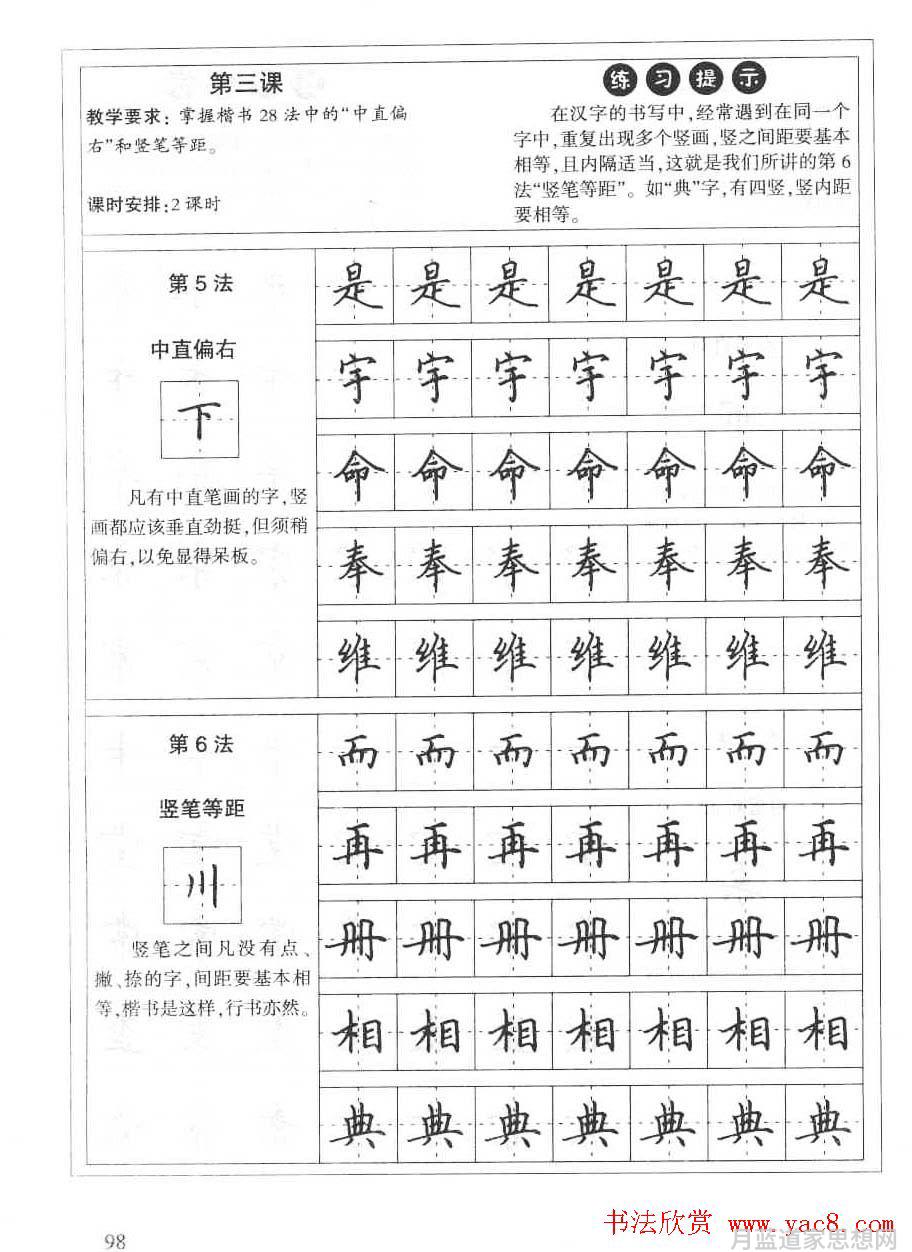 第三课
教学要求：掌握楷书28法中的“中直偏
右”和竖笔等距。
课时安排：2课时
练习提示
在汉字的书写中，经常遇到在同一个
字中，重复出现多个竖画，竖之间距要基本
相等，且内隔适当，这就是我们所讲的第6
法“竖笔等距”。如“典”字，有四竖，竖内距
要相等。
第5法
中直偏右
下
凡有中直笔画的字，竖
画都应该垂直劲挺，但须稍
偏右，以免显得呆板。
是是是是是是是
宇宇宇宇宇宇宇
命命命命命命命
奉奉奉奉奉奉奉
维维维维维维维
第6法
竖笔等距
川
竖笔之间凡没有点、
撇、捺的字，间距要基本相
等，楷书是这样，行书亦然。
而而而而而而而
再再再再再再再
册册册册册册册
相相相相相相相
典典典典典典典
98
书法欣赏 www.yac8.com
月蓝道家思想网